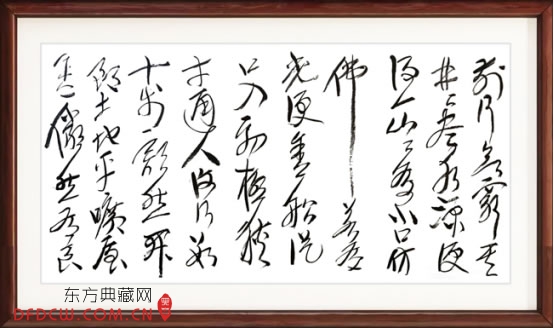 前行欲窮其
林林盡水源便
得一山山有小口彷
佛若有
光便舍船從
口入初極狹
才通人復行數
十步豁然開
朗土地平曠屋
舍儼然有良
东方典藏网
DFDCW.COM.CN